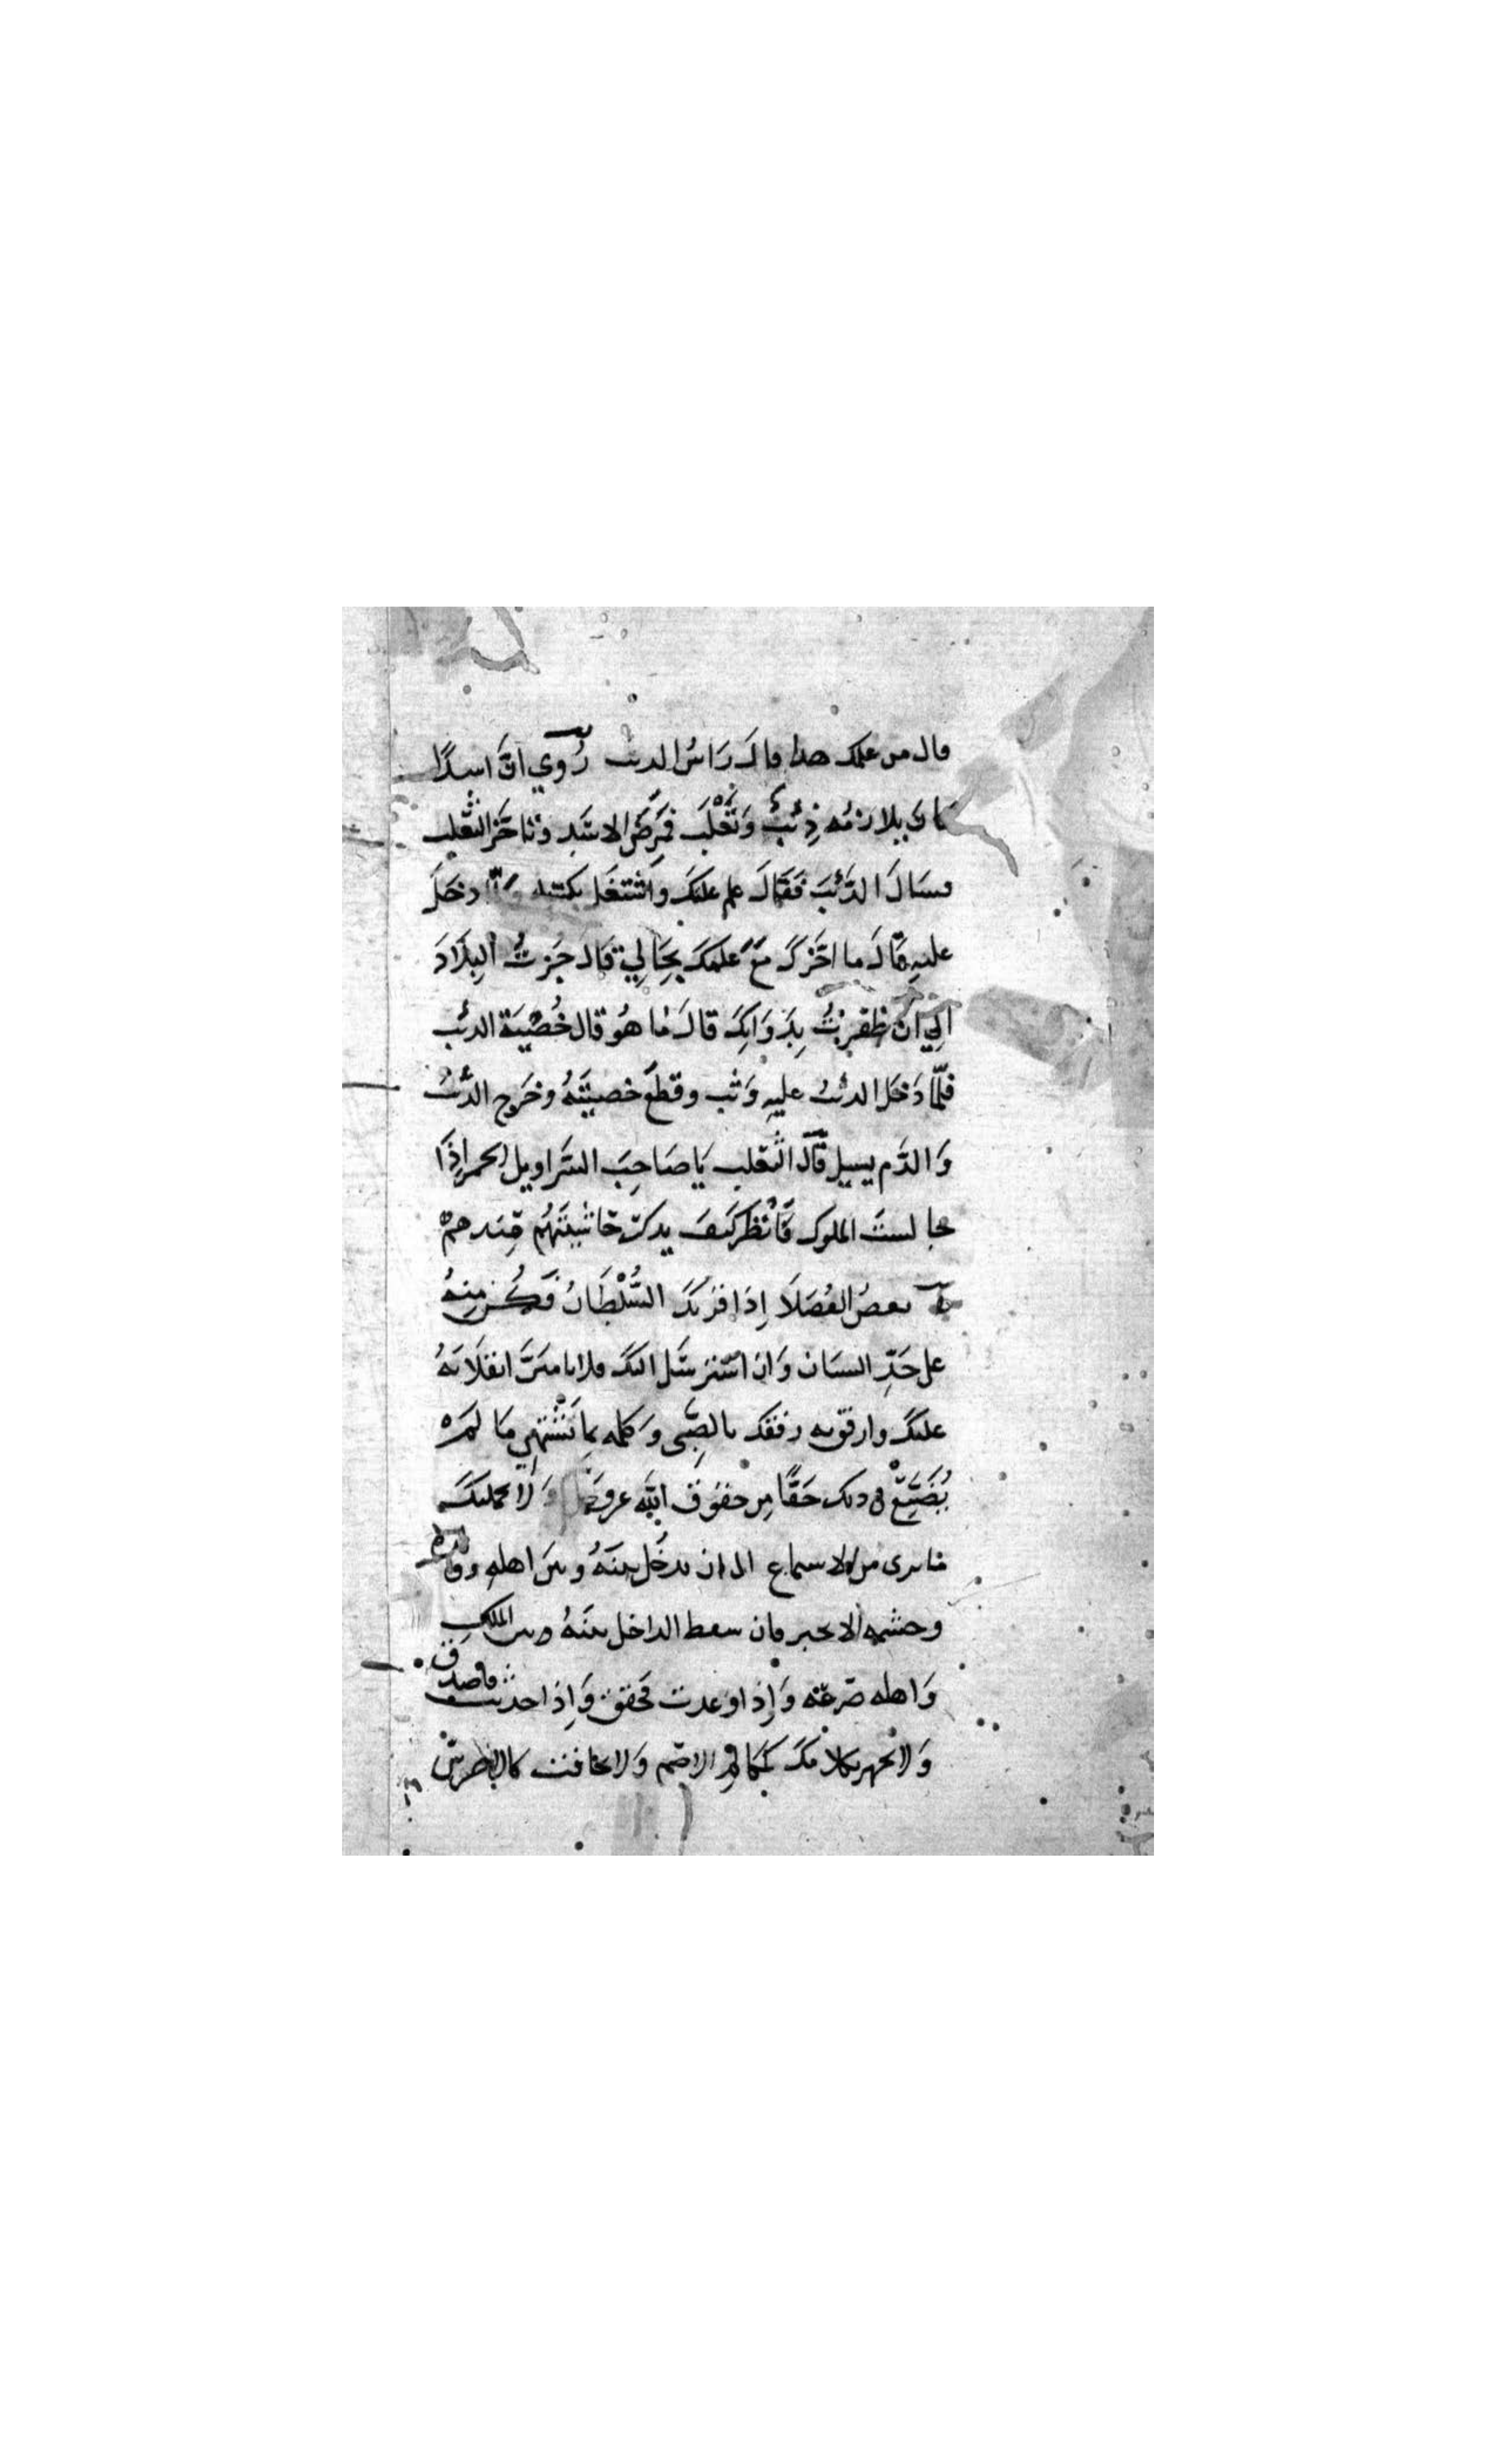 قال من علمك هذا قالَ رَاسُ الذئب رُوي انَّ اسدًا
كان يلازمُه ذِئبٌ وَثَعْلَب فمَرِضَ الاسَد وتاخَّر الثعلب
فسَالَ الذَّئبَ فَقَالَ علم علتكَ وَاشْتغَل بكسبه ولمّا دخَلَ
عليهِ قالَ ما اخَّركَ معَ علمكَ بحَالِي قالَ جُزتُ البِلَادَ
الِي ان ظفِرْتُ بِدَوَايكَ قالَ ما هُو قال خُصْيَة الذئب
فلمّا دَخَل الذئبُ عليهِ وَثب وقطعَ خصيتهُ وخرَج الذئبُ
وَالدَّم يسيل قَالَ الثعلب يَا صَاحِبَ السَّراويل الاحمر اِذَا
جالستَ الملوك فَانْظر كيفَ يذكرك حَاشيتهُم عِندهم
قال بعضُ الفُضَلَا اِذَا قرّبكَ السُّلْطَانُ فَكُن مِنهُ
على حَدِّ السنان وَان استرسَل اليكَ فلا تامنَنَّ انقلَابَهُ
عليكَ وارفق به رفقك بالصِّبى وَكلمه بمَا يَشْتهِي مَا لم
يُضَيّعْ في ذلك حَقًّا مِن حقوق اللَّه عز وجَل وَلا يحملنكَ
ما ترى من الاستماع الى ان تدخُل بينَهُ وبين اهلهِ وولده
وحشمه الا بخير فان سقط الداخل بينَهُ وبين الملك
وَاهله صَرعَة وَاِذا وعدت فحقق وَاِذا حدثت فاصدق
وَلا تجهر بكلامكَ كمَا في الاصَم وَلا تخافت كالاخرس